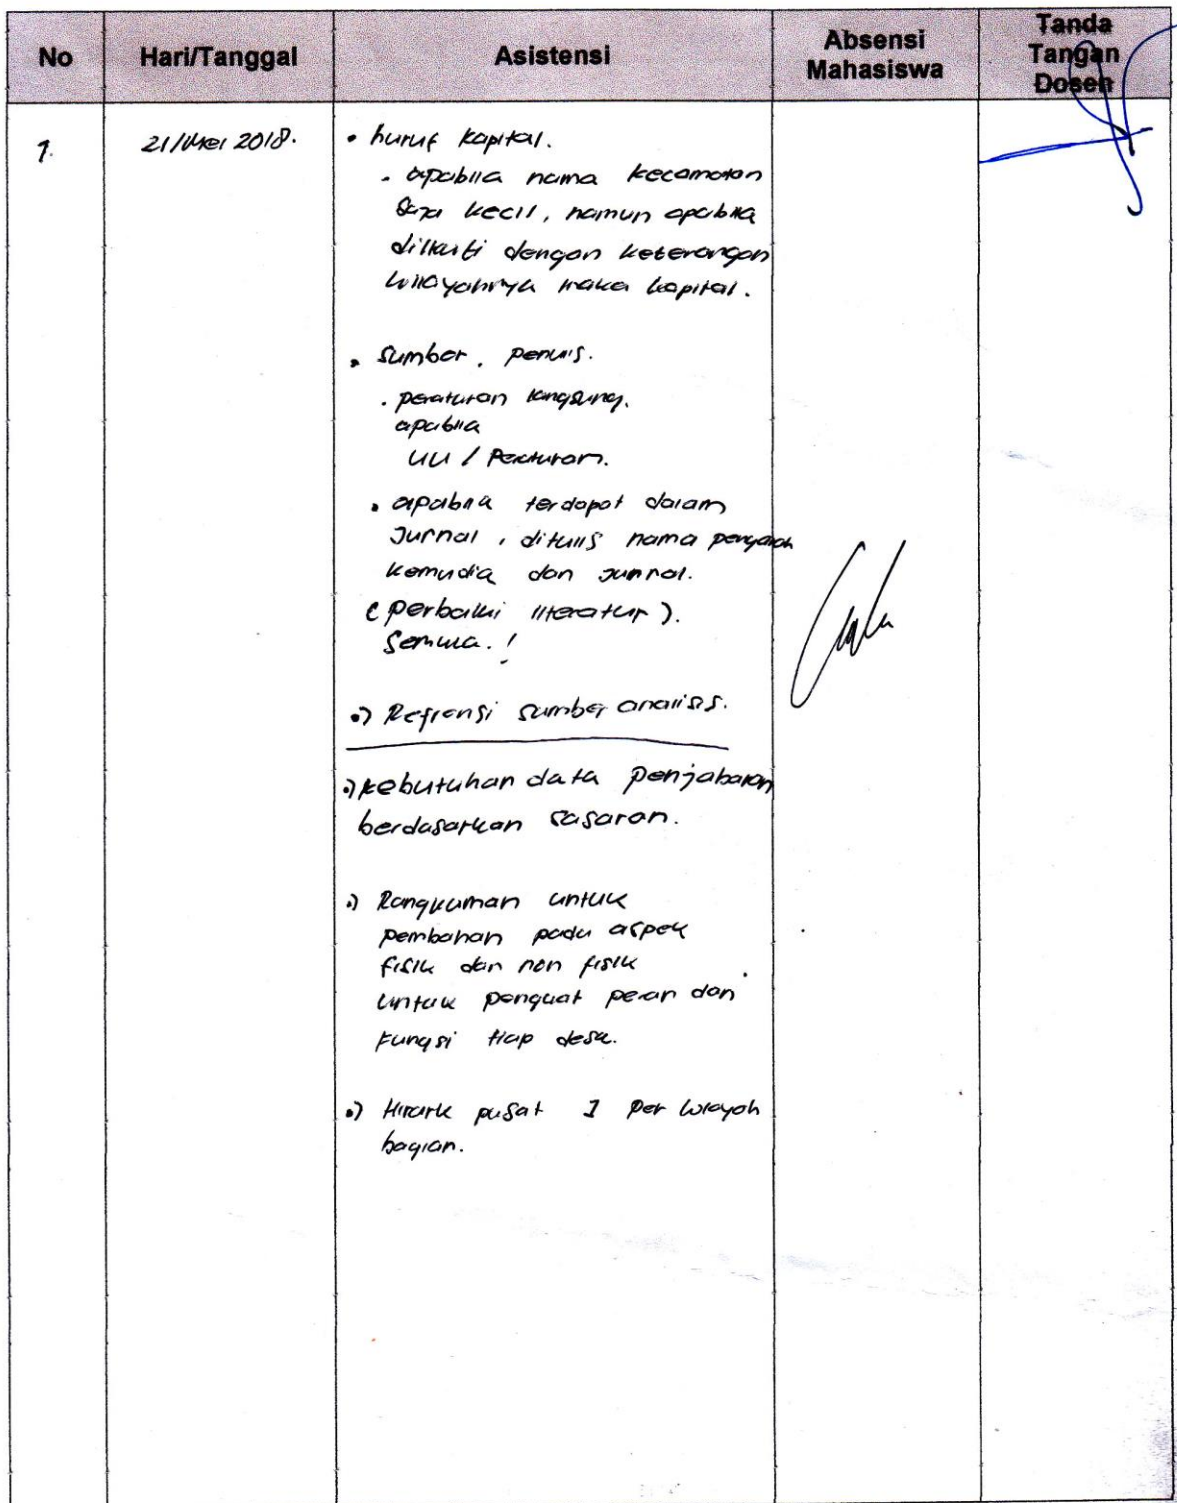 No
Hari/Tanggal
Asistensi
Absensi
Mahasiswa
Tanda
Tangan
Dosen
1.
21/Mei 2018.
• huruf kapital.
. apabila nama kecamatan
saja kecil, namun apabila
diikuti dengan keterangan
wilayahnya maka kapital.
• Sumber. penulis.
. peraturan langsung.
apabila
UU / Peraturan.
• apabila terdapat dalam
Jurnal, ditulis nama
kemudia dan Jurnal.
(perbaiki literatur).
Semua.!
•) Refrensi sumber analisis.
•) kebutuhan data penjabaran
berdasarkan sasaran.
•) Rangkuman untuk
pembahan pada aspek
fisik dan non fisik
untuk penguat peran dan
Fungsi tiap desa.
•) Hirark pusat I per wilayah
bagian.